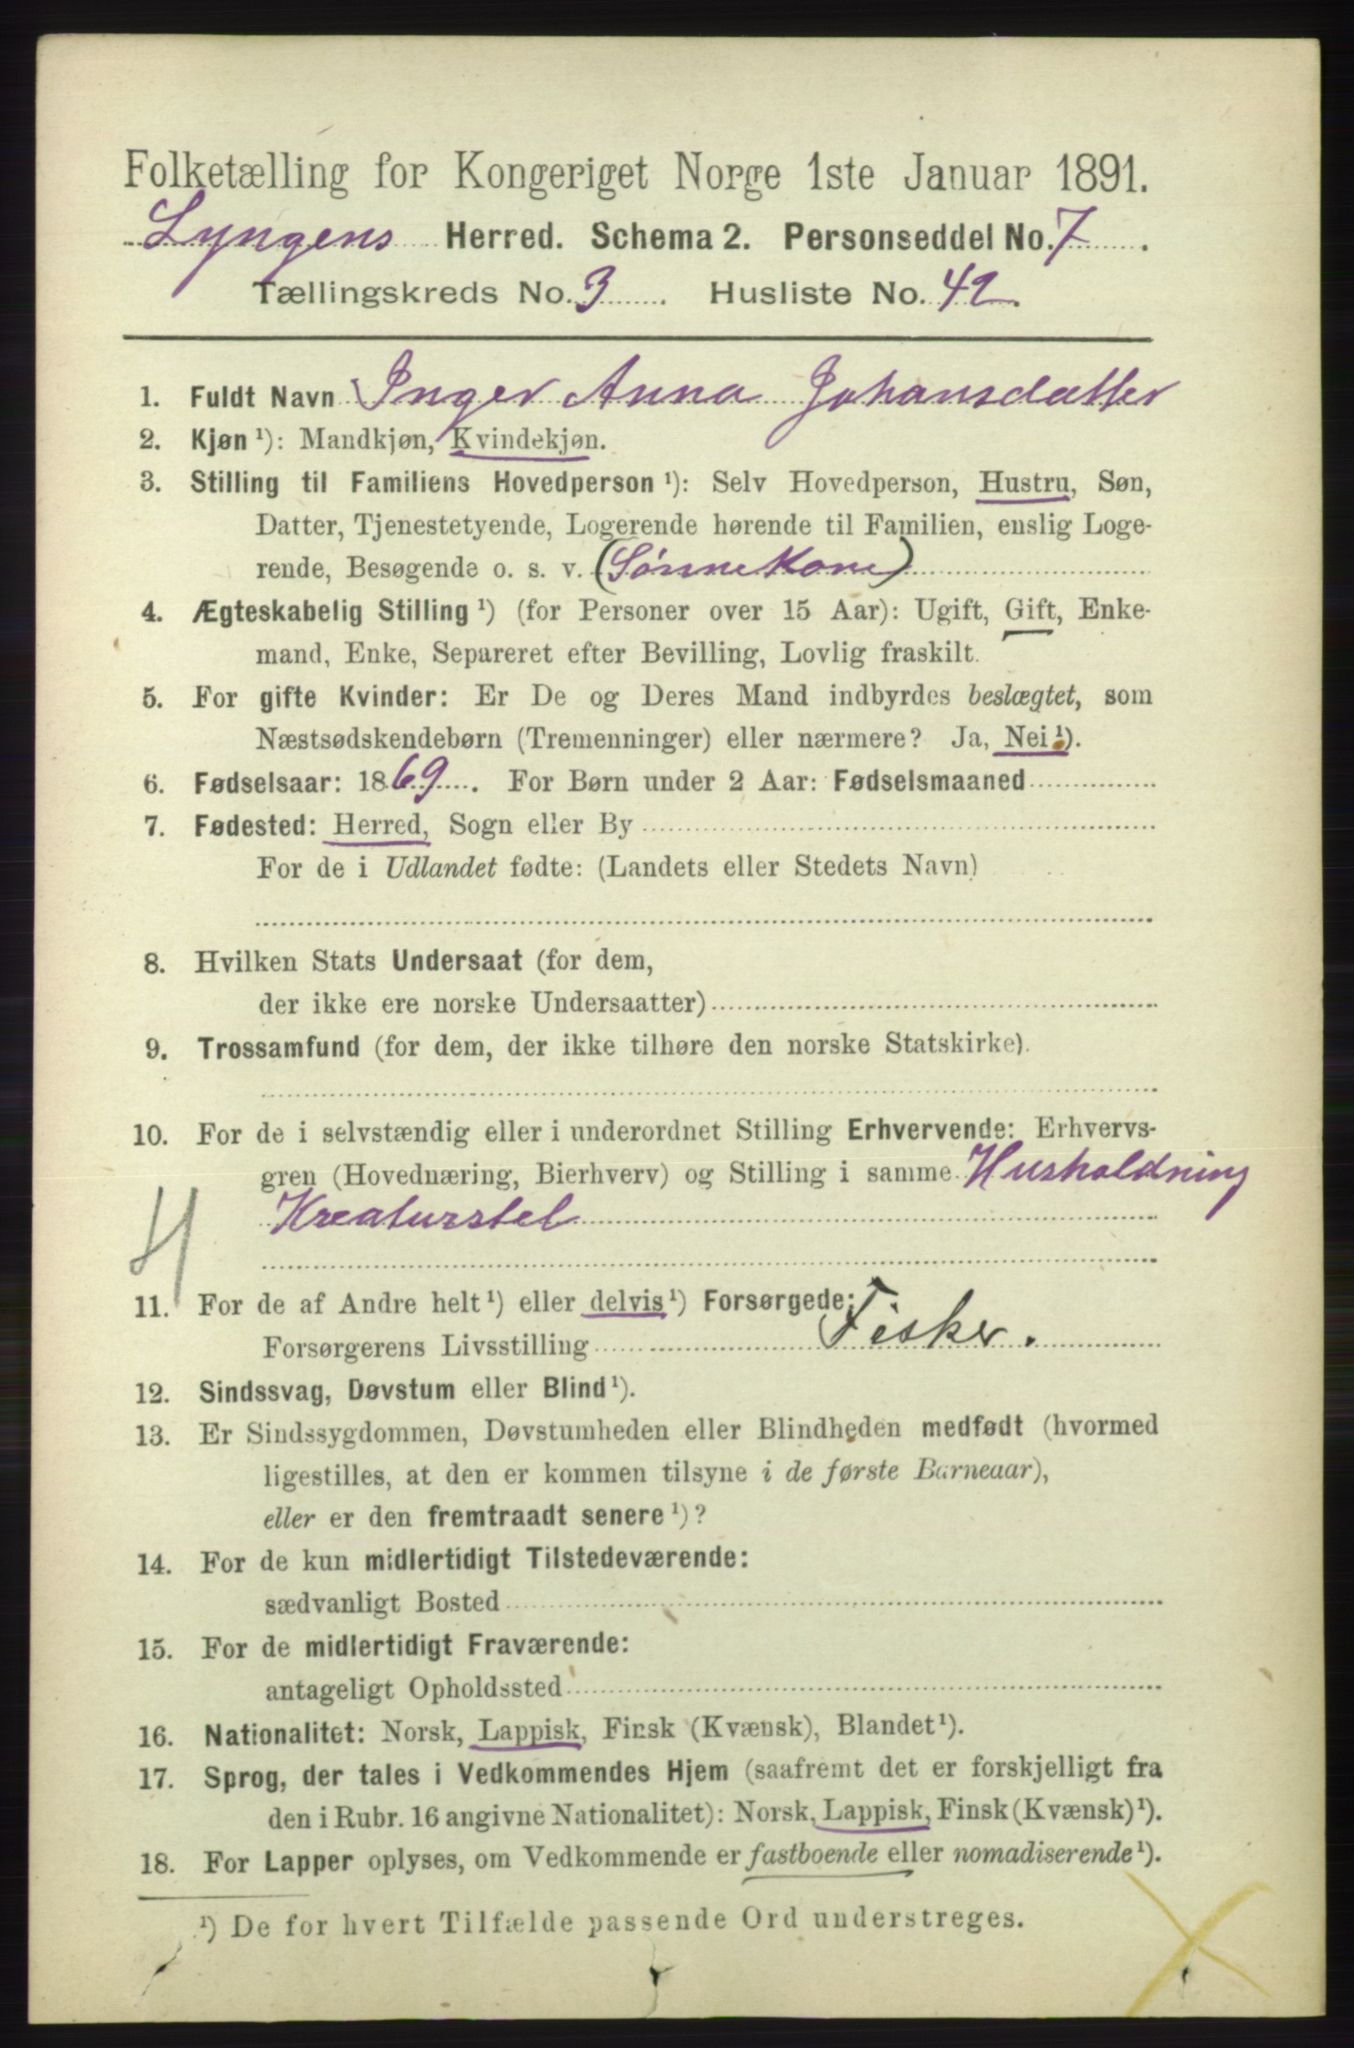 Folketælling for Kongeriget Norge 1ste Januar 1891.
Lyngens Herred. Schema 2. Personseddel No. 7.
Tællingskreds No. 3. Husliste No. 42.
1. Fuldt Navn Inger Anna Johansdatter
2. Kjøn ¹): Mandkjøn, Kvindekjøn.
3. Stilling til Familiens Hovedperson ¹): Selv Hovedperson, Hustru, Søn,
Datter, Tjenestetyende, Logerende hørende til Familien, enslig Loge-
rende, Besøgende o. s. v. (Sönnekone)
4. Ægteskabelig Stilling ¹) (for Personer over 15 Aar): Ugift, Gift, Enke-
mand, Enke, Separeret efter Bevilling, Lovlig fraskilt.
5. For gifte Kvinder: Er De og Deres Mand indbyrdes beslægtet, som
Næstsødskendebørn (Tremenninger) eller nærmere? Ja, Nei ¹).
6. Fødselsaar: 1869. For Børn under 2 Aar: Fødselsmaaned
7. Fødested: Herred, Sogn eller By
For de i Udlandet fødte: (Landets eller Stedets Navn)
8. Hvilken Stats Undersaat (for dem,
der ikke ere norske Undersaatter)
9. Trossamfund (for dem, der ikke tilhøre den norske Statskirke).
10. For de i selvstændig eller i underordnet Stilling Erhvervende: Erhvervs-
gren (Hovednæring, Bierhverv) og Stilling i samme Husholdning
Kreaturstel
H
11. For de af Andre helt ¹) eller delvis ¹) Forsørgede:
Forsørgerens Livsstilling Fisker.
12. Sindssvag, Døvstum eller Blind ¹).
13. Er Sindssygdommen, Døvstumheden eller Blindheden medfødt (hvormed
ligestilles, at den er kommen tilsyne i de første Barneaar),
eller er den fremtraadt senere ¹)?
14. For de kun midlertidigt Tilstedeværende:
sædvanligt Bosted
15. For de midlertidigt Fraværende:
antageligt Opholdssted
16. Nationalitet: Norsk, Lappisk, Finsk (Kvænsk), Blandet ¹).
17. Sprog, der tales i Vedkommendes Hjem (saafremt det er forskjelligt fra
den i Rubr. 16 angivne Nationalitet): Norsk, Lappisk, Finsk (Kvænsk) ¹).
18. For Lapper oplyses, om Vedkommende er fastboende eller nomadiserende ¹).
¹) De for hvert Tilfælde passende Ord understreges.